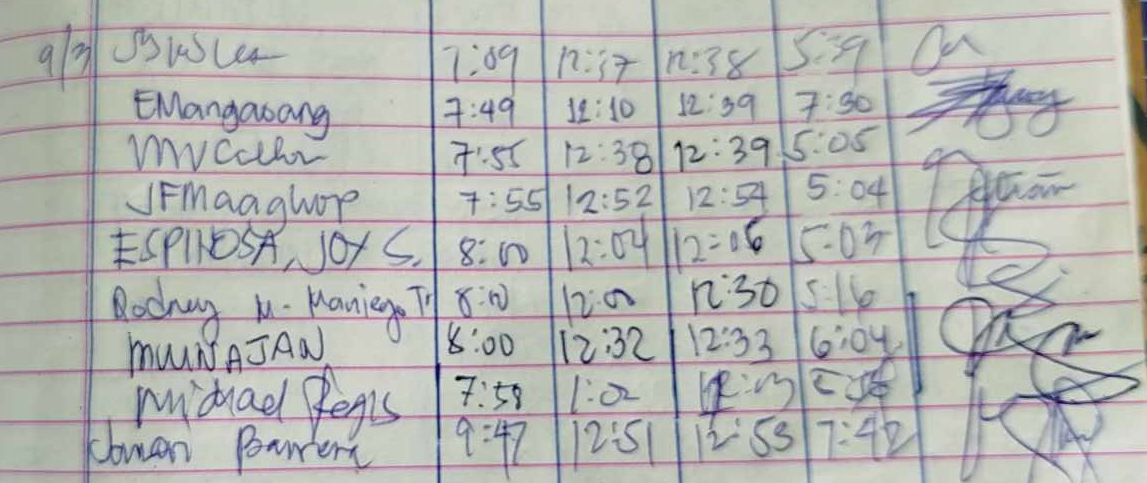 9/3 7:09 12:37 12:38 5:39
EMangaoang 7:49 12:10 12:39 7:30
7:55 12:38 12:39 5:05
JFMaaghop 7:55 12:52 12:54 5:04
ESPINOSA, JOY S. 8:00 12:04 12:06 5:03
Rodney M. Maniego Jr 8:00 12:00 12:30 5:16
MUNAJAN 8:00 12:32 12:33 6:04
Michael Regis 7:58 1:02
Barrera 9:47 12:51 12:53 7:42